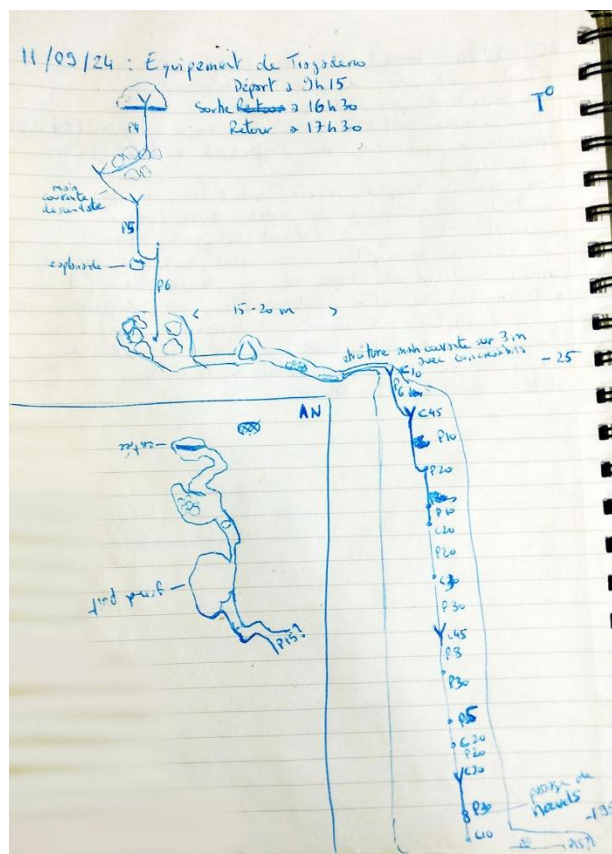 11/09/24 : Equipement de
Départ à 9h15
Sortie Retour à 16h30
Retour à 17h30
T°
P4
main
courante
descendante
P5
esplanade
P6
< 15-20 m >
étroiture main courante sur 3 m
avec
-25
C10
P6
C45
P10
P20
P10
C20
P20
C30
P30
C45
P8
P30
P5
C20
P20
C30
P30
passage de
nœuds
C10
P15?
AN
entrée
grand puit
P15?